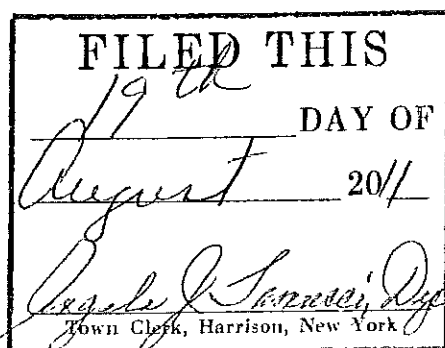 FILED THIS
19th DAY OF
August 2011
Angela J.
Town Clerk, Harrison, New York